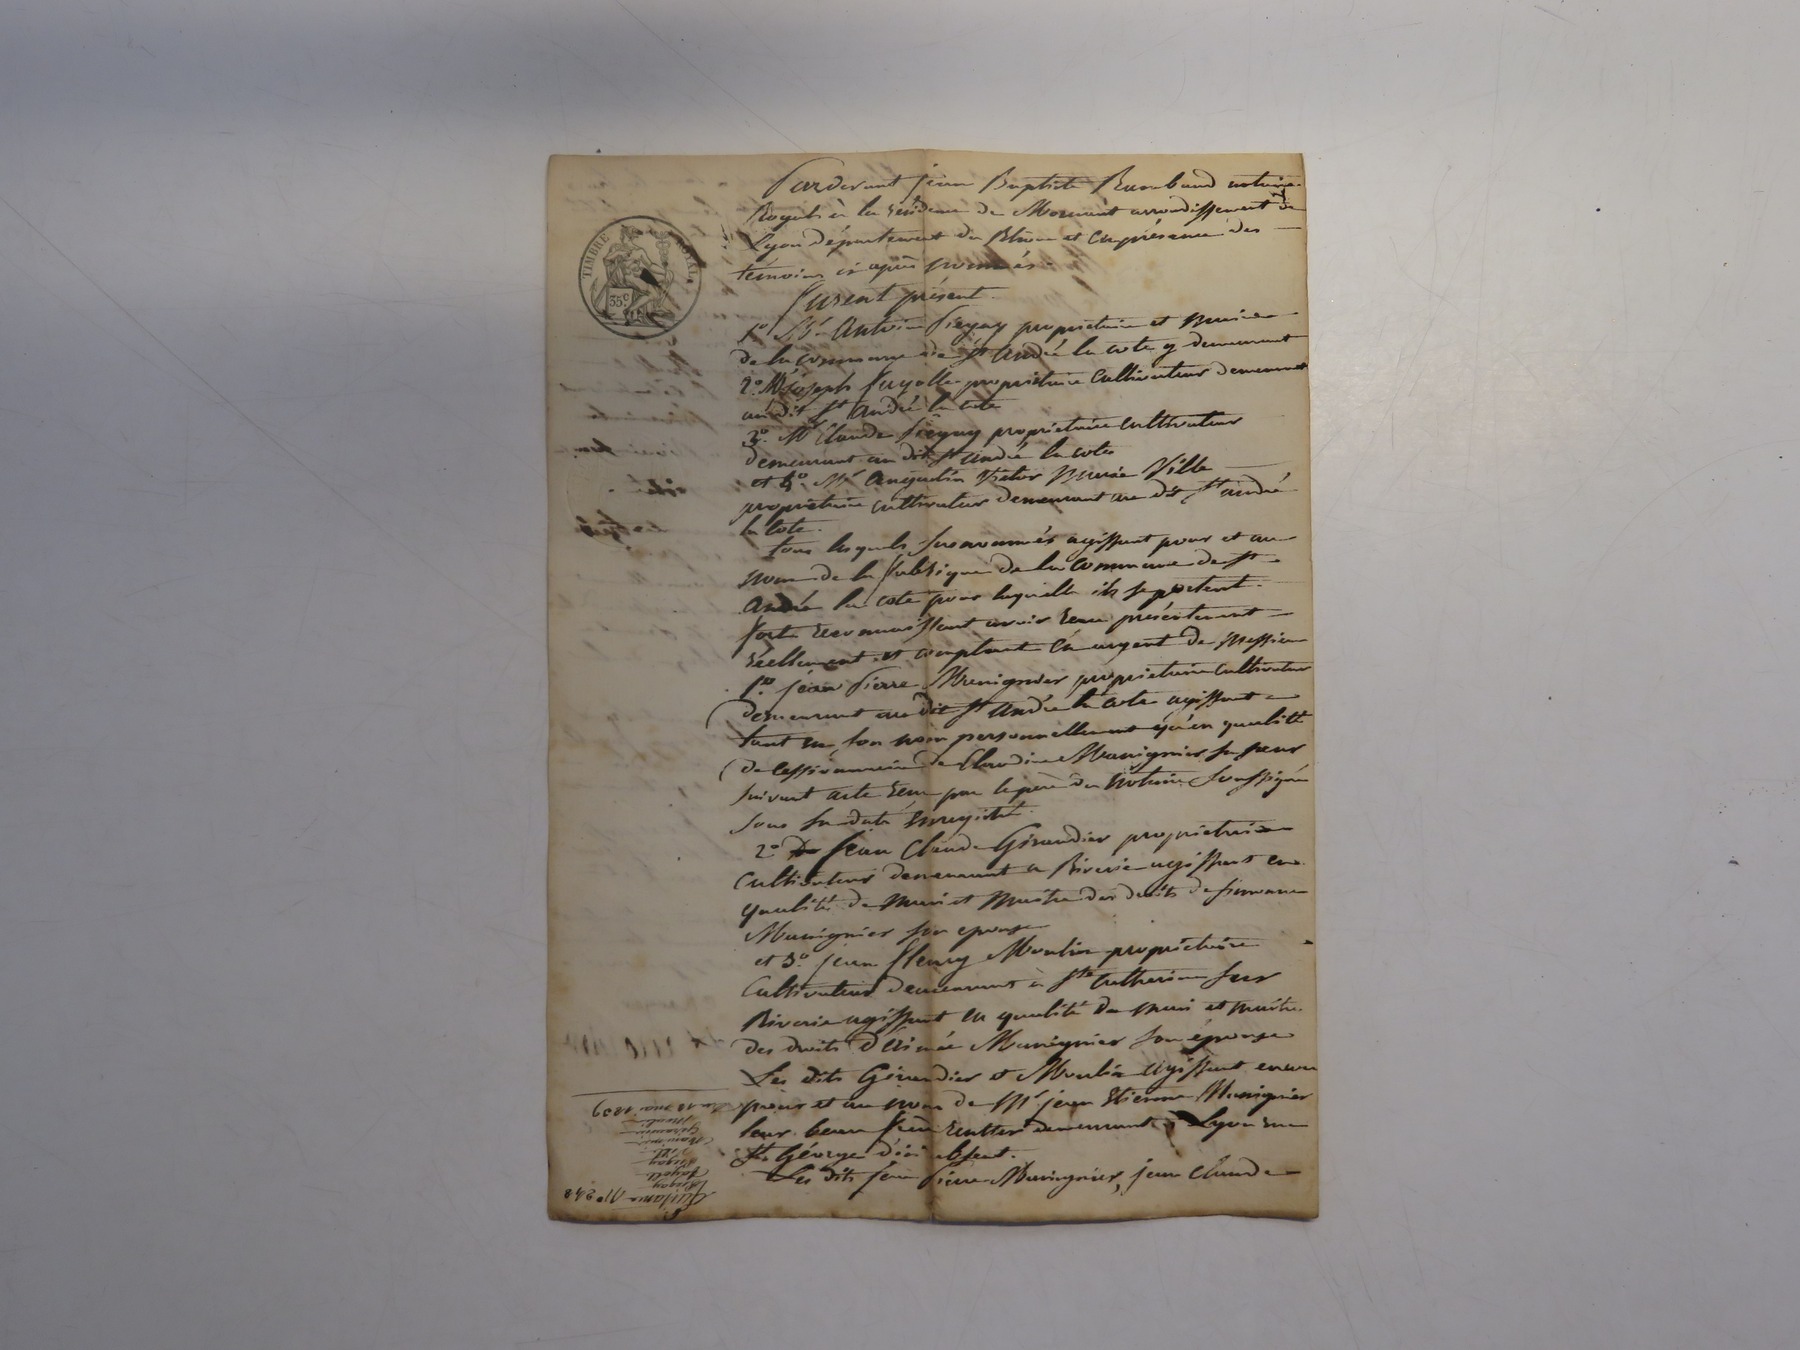 Pardevant jean Baptiste Rambaud notaire
Royal à la résidence de Mornant arrondissement de
Lyon département du Rhône et en présence des
témoins ci après nommés.
furent présent.
1º Mr Antoine Piegay propriétaire et maire
de la commune de St André la cote y demeurant
2º Mr joseph fayolle propriétaire cultivateur demeurant
au dit St André la cote
3º. Mr Claude Piegay propriétaire cultivateur
demeurant au dit St André la cote
et 4º Mr Victor Marie Ville
propriétaire cultivateur demeurant au dit St André
la cote.
tous lesquels susnommés agissant pour et au
nom de la fabrique de la commune de St
André la cote pour laquelle ils se portent
fort reconnaissent avoir reçu présentement
réellement et comptant en argent de messieurs
1º. jean Pierre Mavignier propriétaire cultivateur
demeurant au dit St André la cote agissant
tant en son nom personnellement qu'en qualité
de cessionnaire de Claudine Mavignier sa sœur
suivant acte reçu par le père du notaire soussigné
sous sa date enregistré.
2º jean Claude Giraudier propriétaire
cultivateur demeurant a Riverie agissant en
qualité de mari et maitre des droits de
Mavignier son epouse
et 3º. jean fleury Moulin propriétaire
cultivateur demeurant à Ste Catherine sur
Riverie agissant en qualité de mari et maitre
des droits d'Aimée Mavignier son épouse
Les dits Giraudier et Moulin agissant encore
pour et au nom de Mr jean Etienne Mavignier
leur beau frère rentier demeurant à Lyon rue
St George d'ici absent.
Les dits jean Pierre Mavignier, jean Claude
TIMBRE ROYAL
35 c
Quittance Nº 248
Piegay
fayolle
Piegay
Ville
Mavignier
Giraudier
Moulin